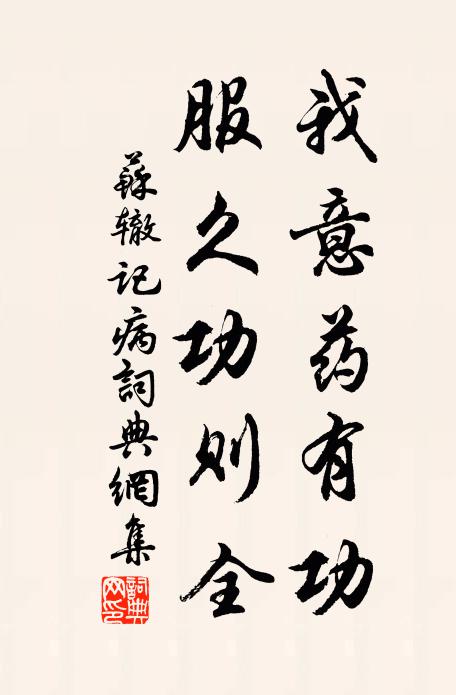 我意药有功
服久功则全
蘇辙记病詞典網集
詞典网印